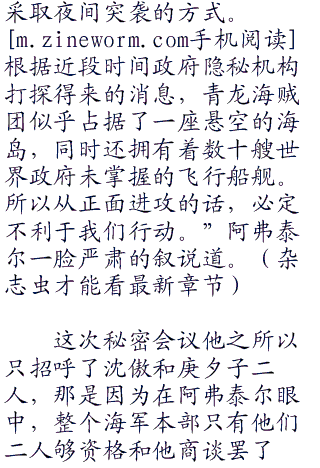 采取夜间突袭的方式。
[m.zineworm.com手机阅读]
根据近段时间政府隐秘机构
打探得来的消息，青龙海贼
团似乎占据了一座悬空的海
岛，同时还拥有着数十艘世
界政府未掌握的飞行船舰。
所以从正面进攻的话，必定
不利于我们行动。”阿弗泰
尔一脸严肃的叙说道。（杂
志虫才能看最新章节）
这次秘密会议他之所以
只招呼了沈傲和庚夕子二
人，那是因为在阿弗泰尔眼
中，整个海军本部只有他们
二人够资格和他商谈罢了